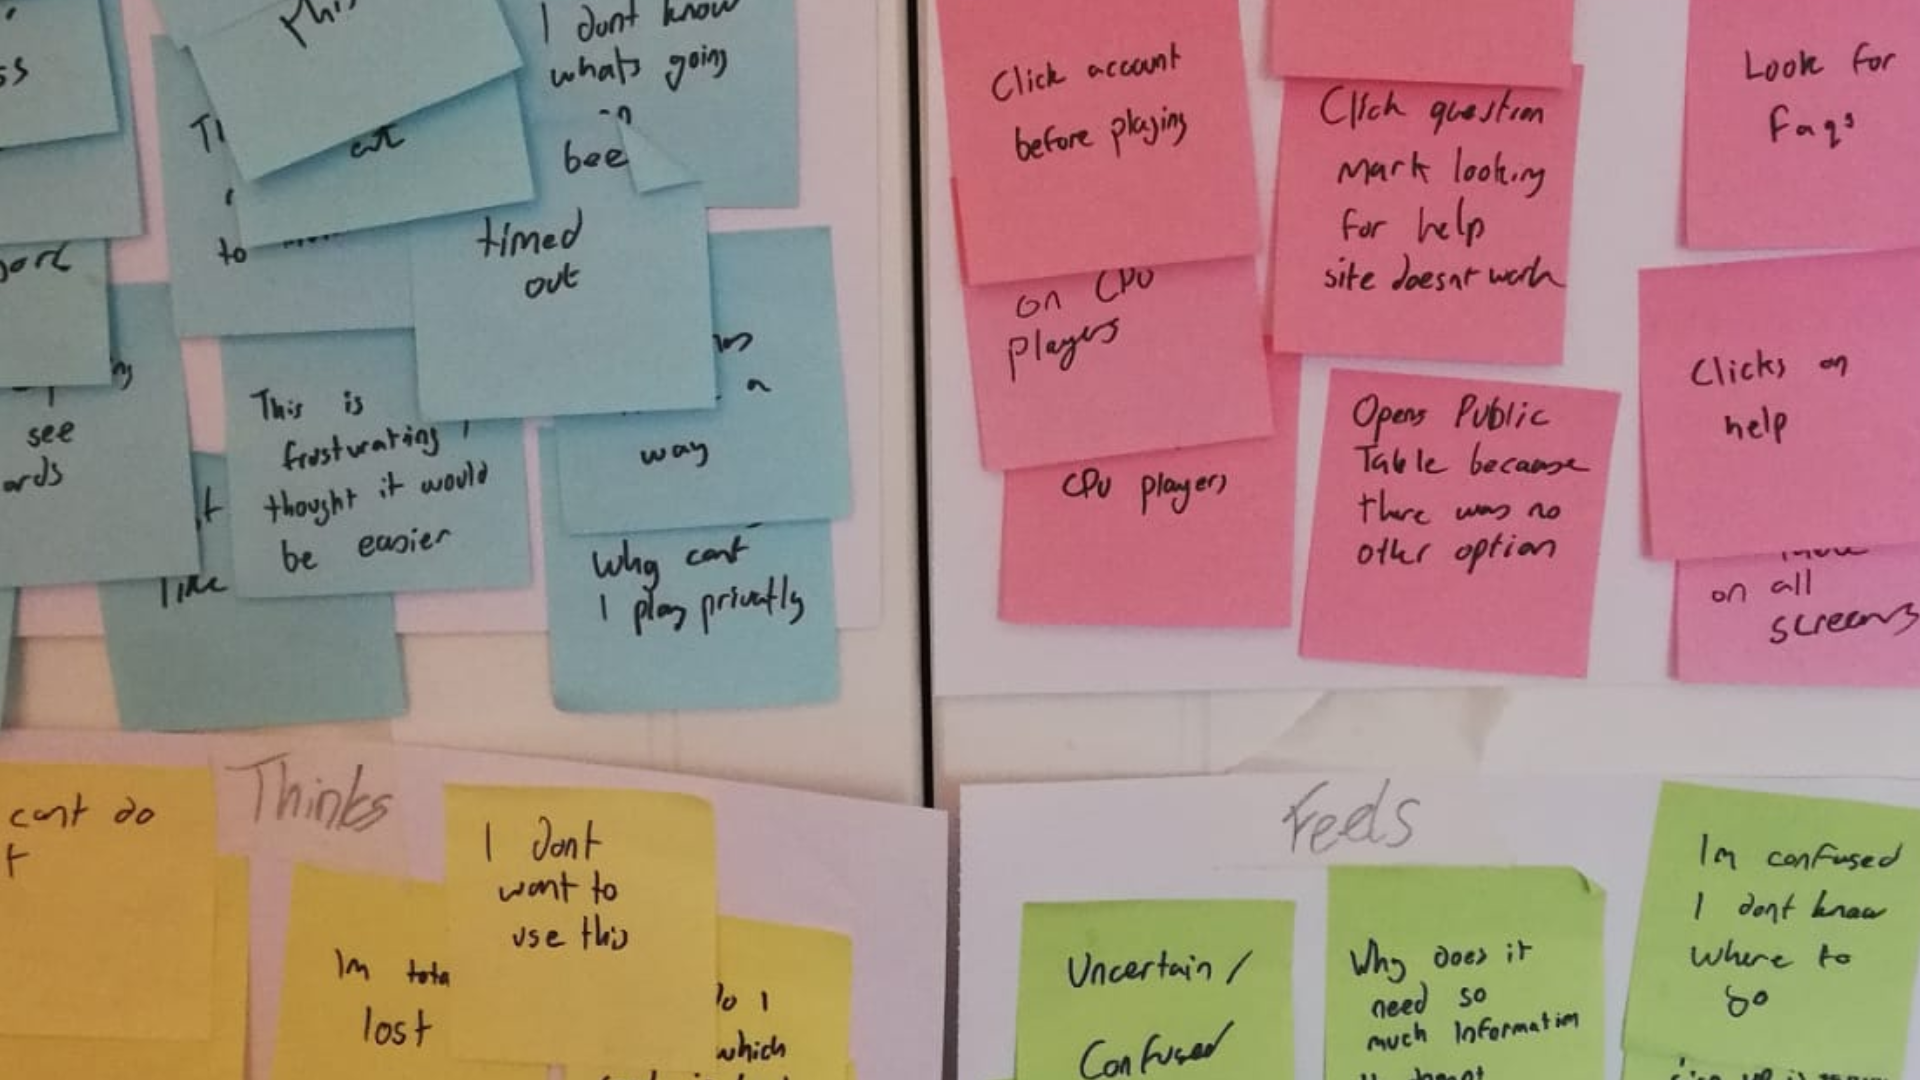 I dont know
whats going
bee
timed
out
to
see
ards
This is
frusturating I
thought it would
be easier
a
way
Why cant
I play privatly
like
Click account
before playing
on CPU
players
CPU players
Click question
mark looking
for help
site doesnt work
Opens Public
Table because
there was no
other option
Look for
faqs
Clicks on
help
on all
screens
Thinks
cant do
I dont
want to
use this
Im tota
lost
do I
which
Feels
Uncertain /
Confused
Why does it
need so
much Information
Im confused
I dont know
where to
go